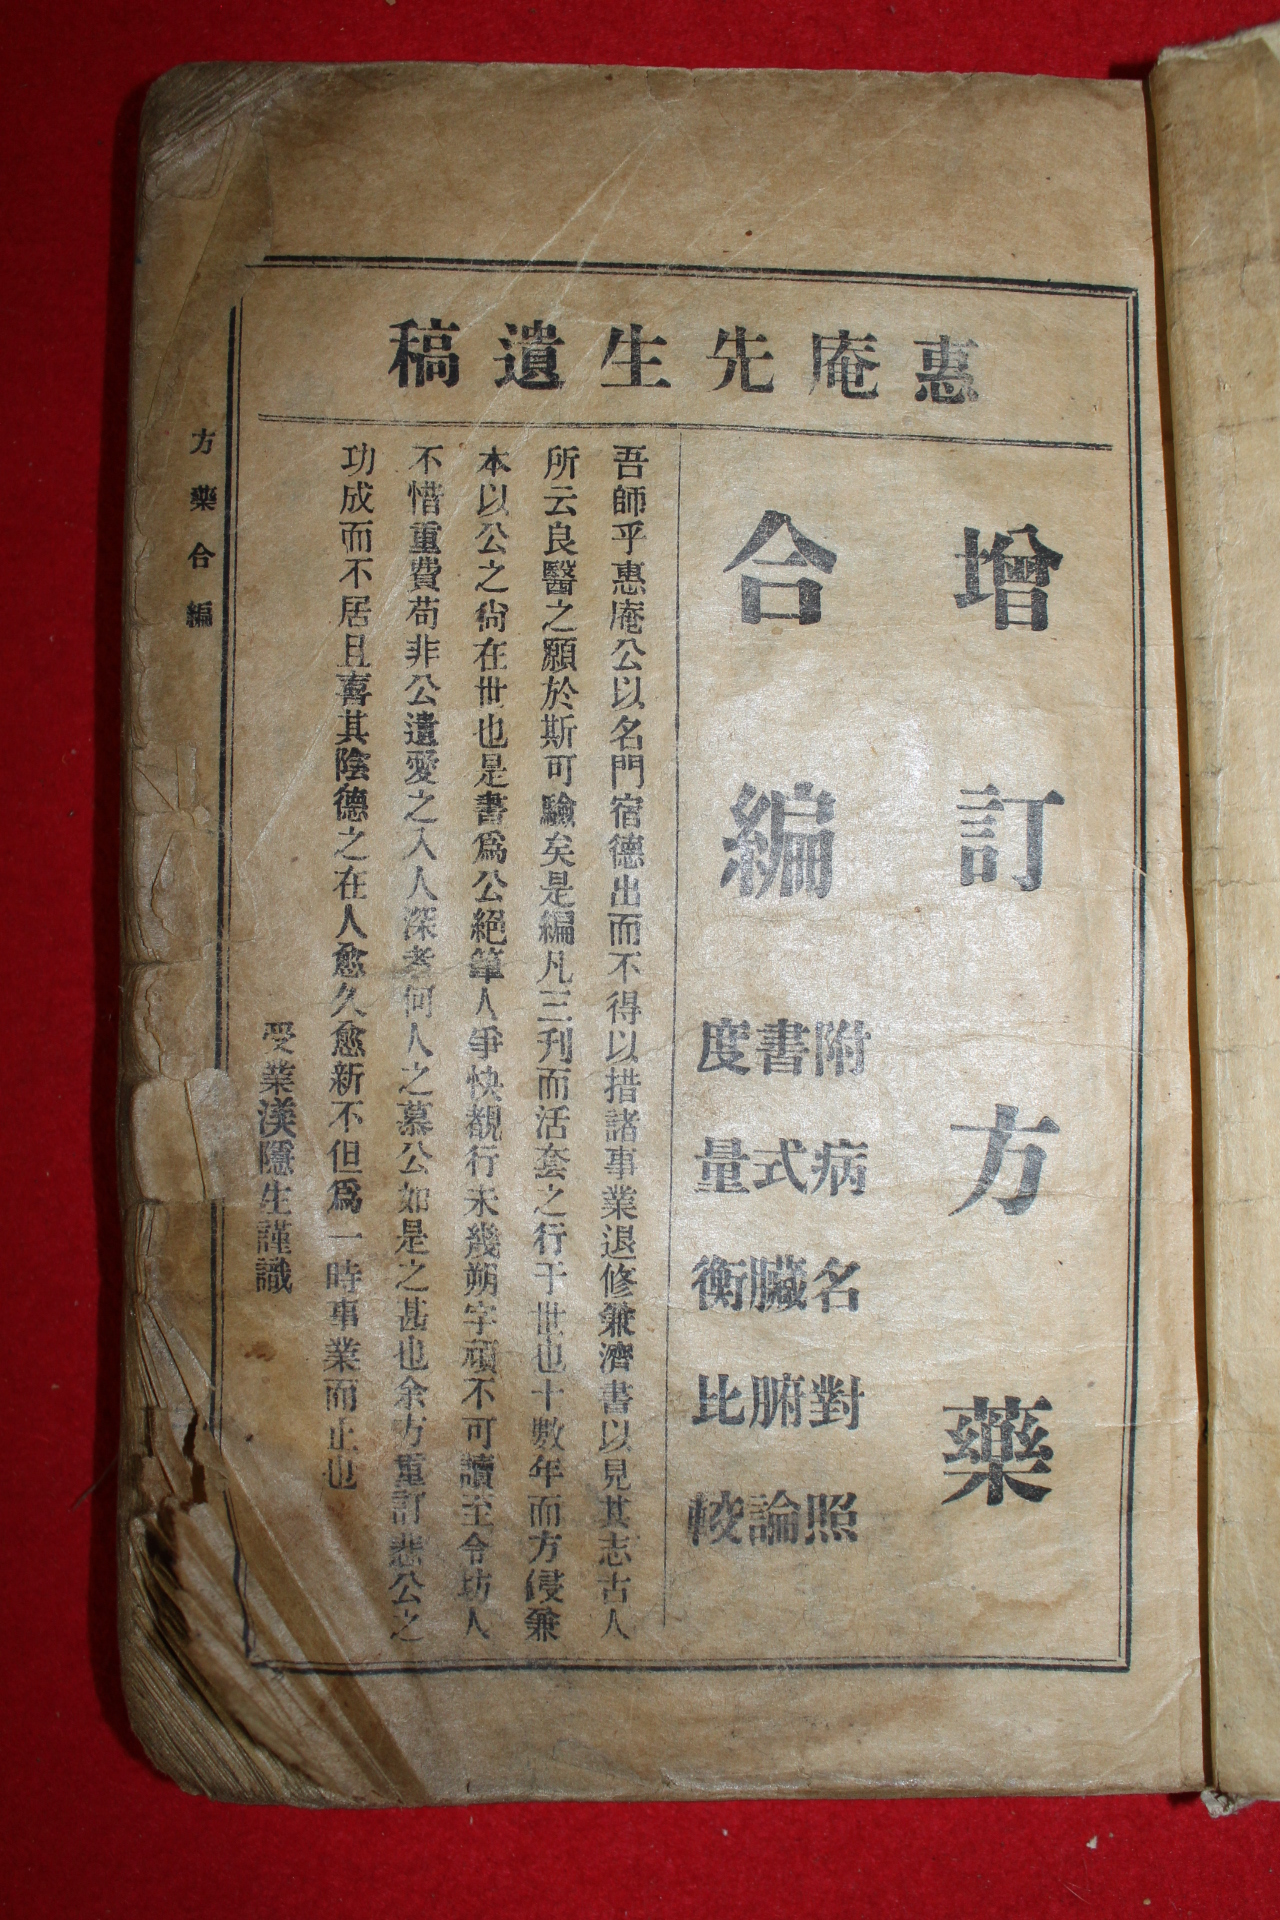 惠庵先生遺稿
增訂方藥
合編
附病名對照
書式臟腑論
度量衡比較
吾師乎惠庵公以名門宿德出而不得以措諸事業退修兼濟書以見其志古人
所云良醫之願於斯可驗矣是編凡三刊而活套之行于世也十數年而方侵兼
本以公之尙在世也是書爲公絕筆人爭快覩行未幾朔字頑不可讀至令坊人
不惜重費苟非公遺愛之入人深者何人之慕公如是之甚也余方重訂悲公之
功成而不居且喜其陰德之在人愈久愈新不但爲一時事業而止也
受業渼隱生謹識
方藥合編